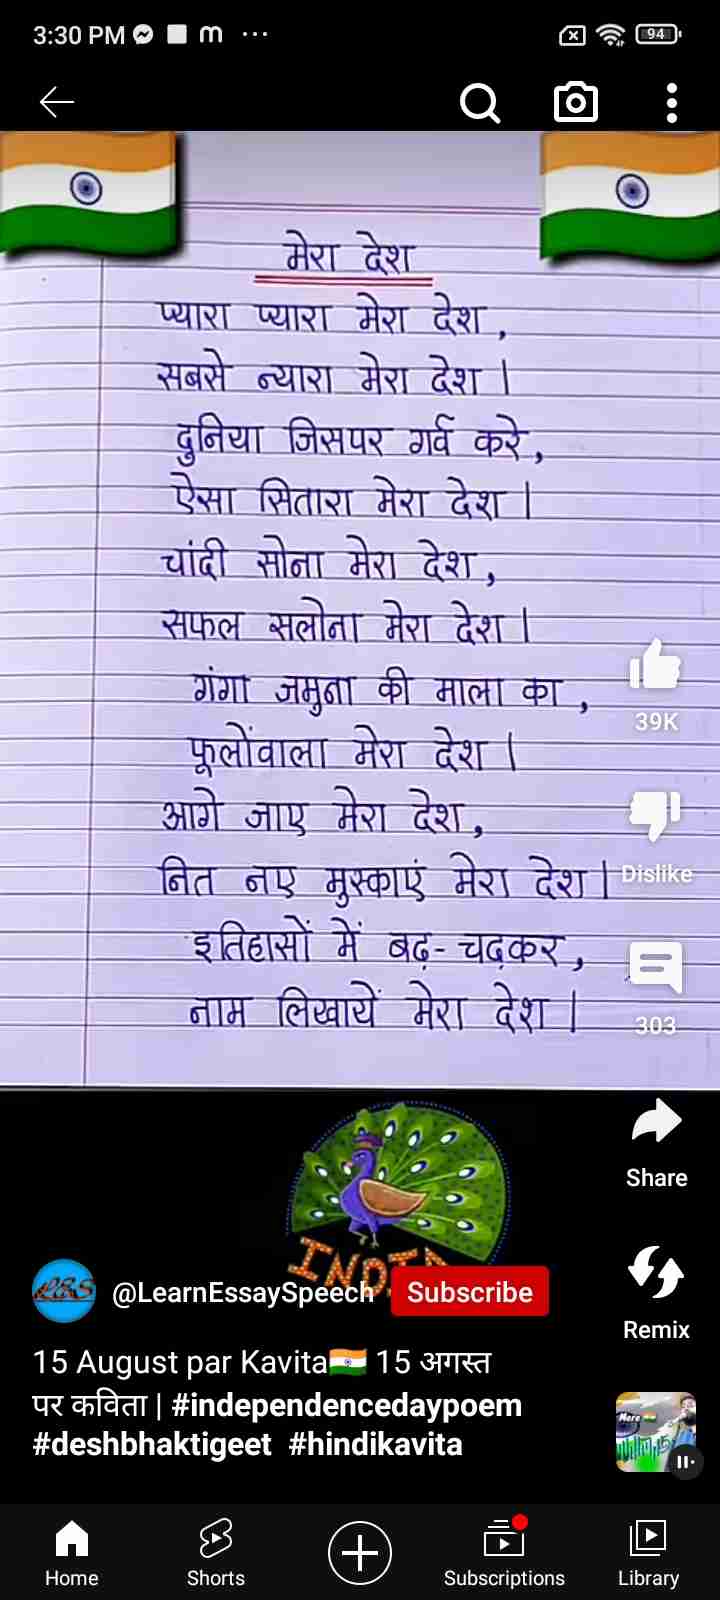 3:30 PM m ...
94
मेरा देश
प्यारा प्यारा मेरा देश,
सबसे न्यारा मेरा देश।
दुनिया जिसपर गर्व करे,
ऐसा सितारा मेरा देश।
चांदी सोना मेरा देश,
सफल सलोना मेरा देश।
गंगा जमुना की माला का,
फूलोंवाला मेरा देश।
आगे जाए मेरा देश,
नित नए मुस्काएं मेरा देश।
इतिहासों में बढ़-चढ़कर,
नाम लिखायें मेरा देश।
39K
Dislike
303
Share
INDIA
@LearnEssaySpeech Subscribe
Remix
15 August par Kavita🇮🇳 15 अगस्त
पर कविता | #independencedaypoem
#deshbhaktigeet #hindikavita
Mere
Home Shorts Subscriptions Library